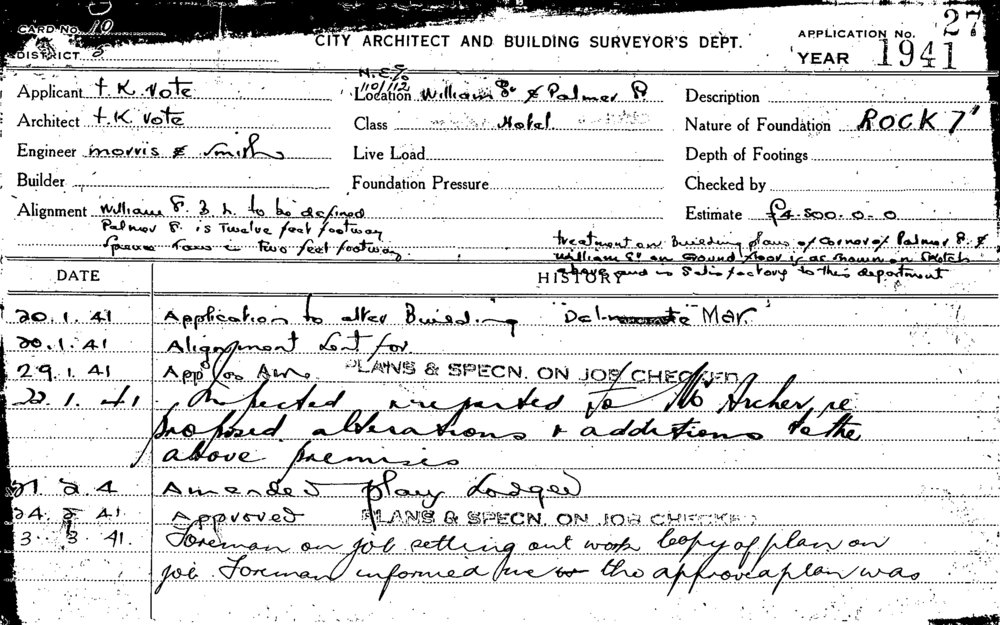 CARD No. 10
DISTRICT 3
CITY ARCHITECT AND BUILDING SURVEYOR'S DEPT.
APPLICATION No. 27
YEAR 1941
N.E. C/o
110/112
Applicant t. K. Vote
Location William St & Palmer St.
Description
Architect t. K. Vote
Class Hotel.
Nature of Foundation ROCK 7'
Engineer morris & Smith
Live Load
Depth of Footings
Builder
Foundation Pressure
Checked by
Alignment William St. B. L. to be defined
Estimate £4.500.0.0
Palmer St. is Twelve feet footway
two feet footway
treatment on Building plans of Corner of Palmer St. &
William St on Ground floor is as shown on Sketch
above and is Satisfactory to this department
DATE
HISTORY
20.1.41 Application to alter Building "Del Mar."
20.1.41 Alignment Sent for.
29.1.41 App for PLANS & SPECN. ON JOB CHECKED
22.1.41 Inspected & reported to Mr Archer re
proposed alterations & additions to the
above premises
21.2.4 Amended plans Lodged
24.2.41 Approved PLANS & SPECN. ON JOB CHECKED
3.3.41. Foreman on job setting out work Copy of plan on
job Foreman informed me the approved plan was